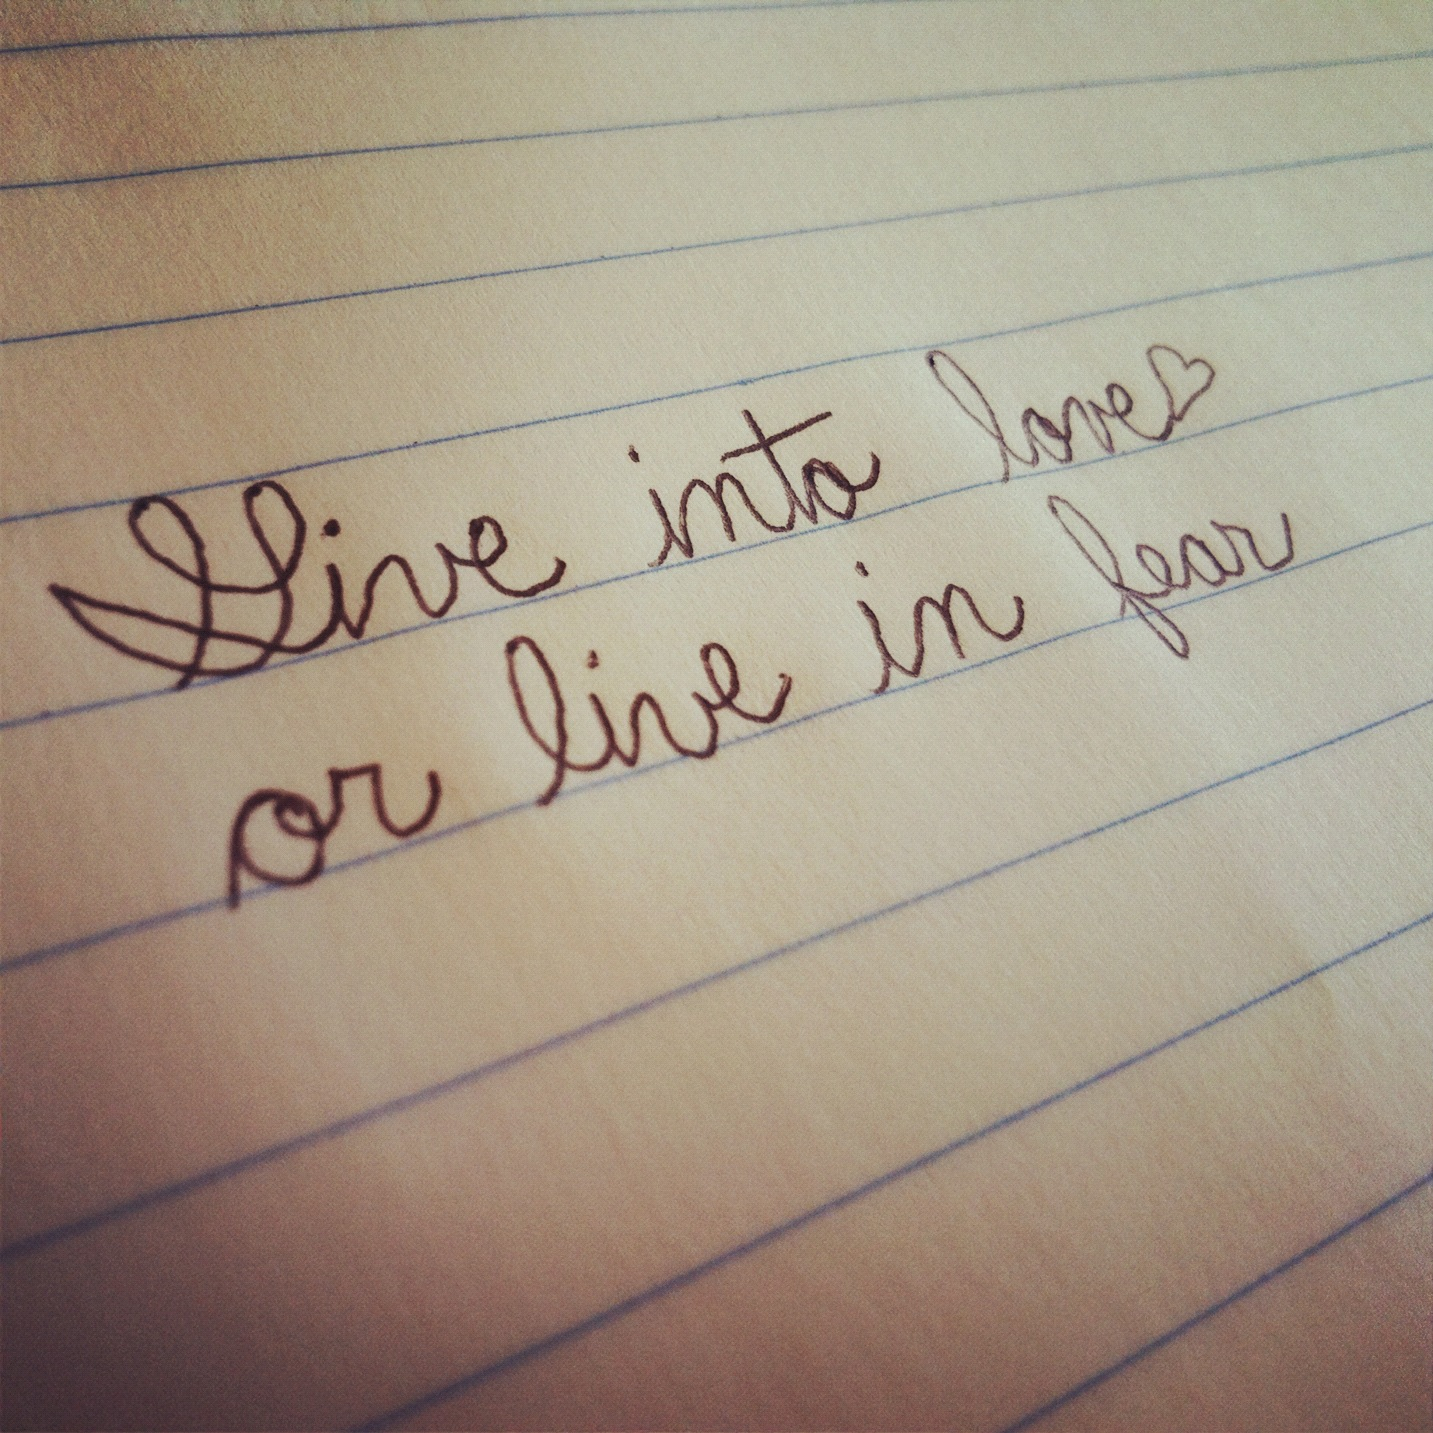 Give into love♡
or live in fear